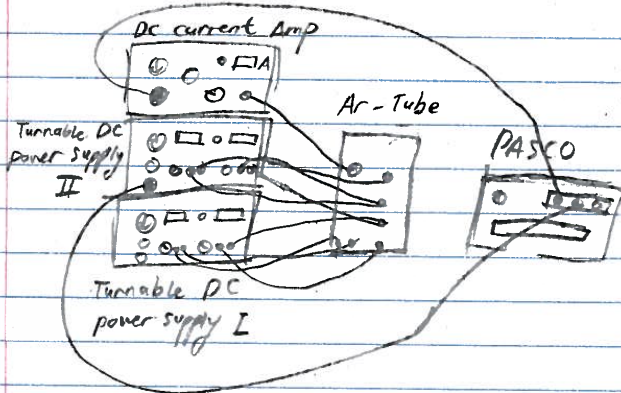 Dc current Amp
A
Ar-Tube
Turnable DC
power supply
II
PASCO
Turnable DC
power supply I